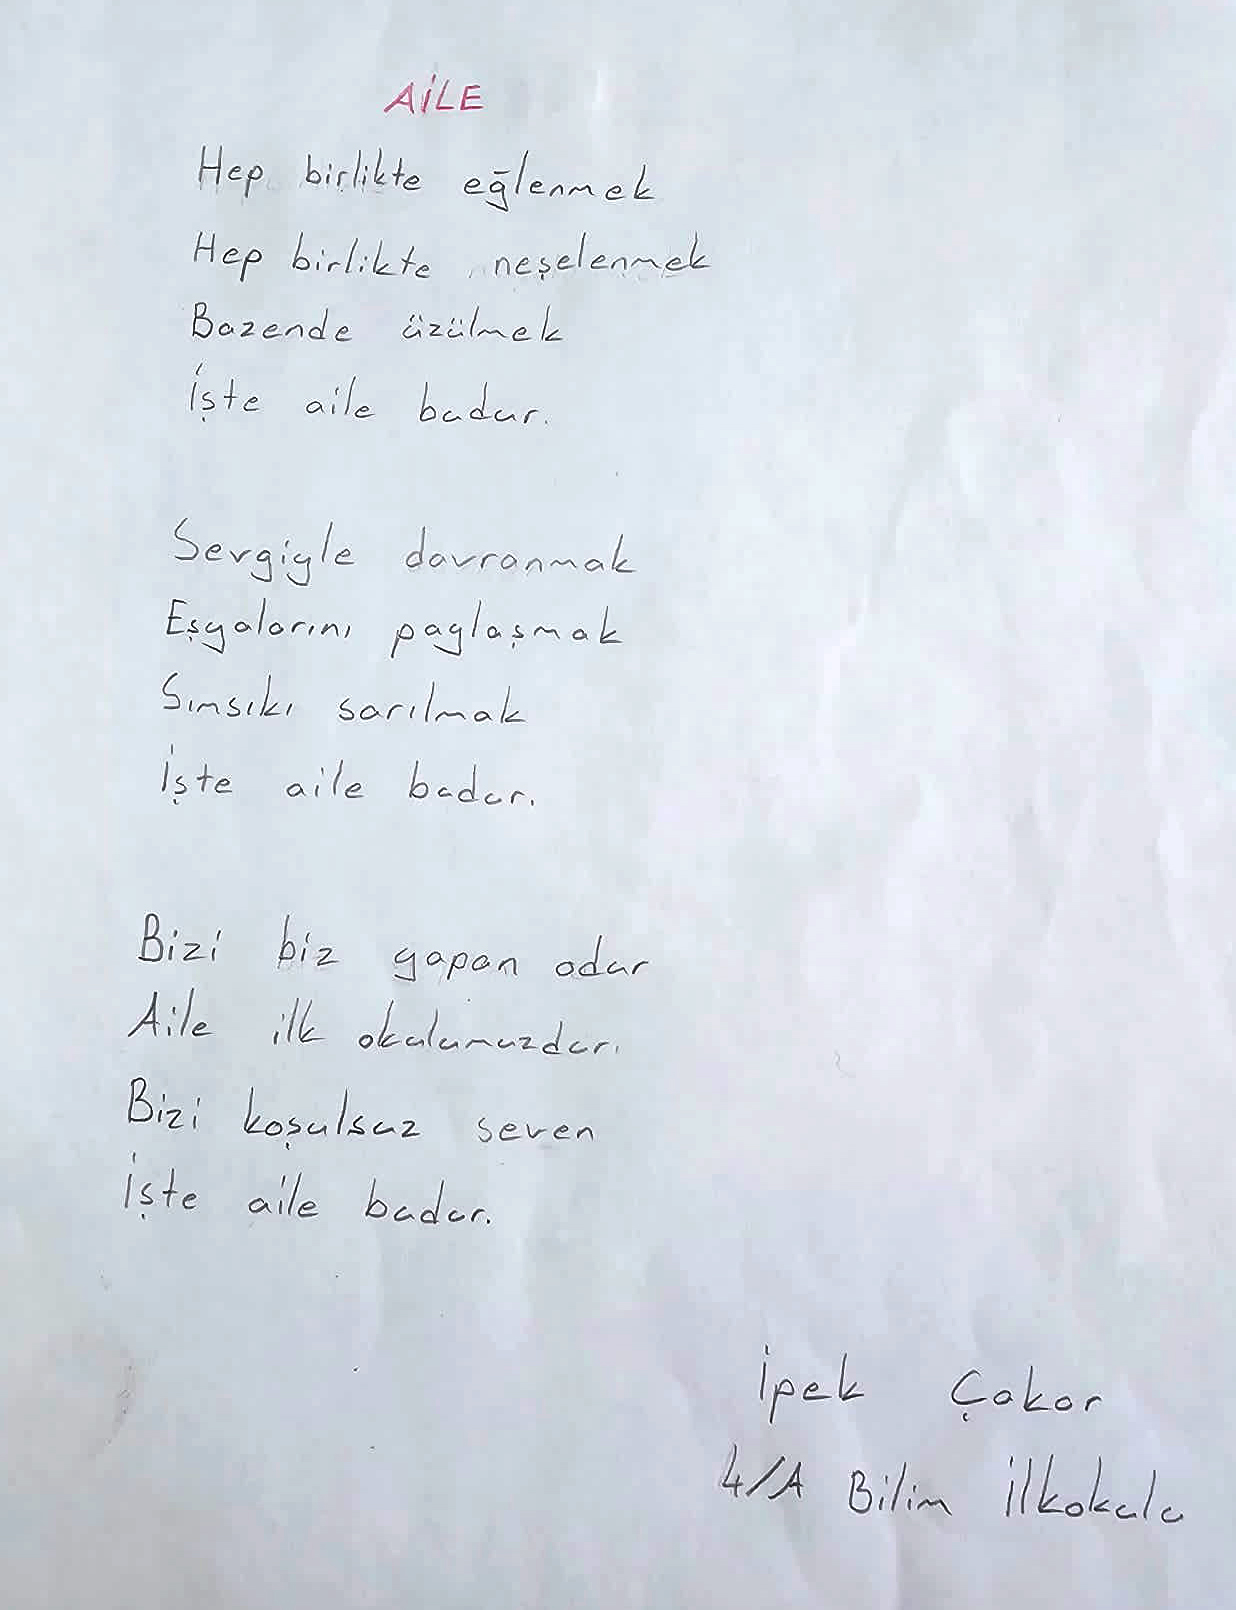 AİLE
Hep birlikte eğlenmek
Hep birlikte neşelenmek
Bazende üzülmek
İşte aile budur.
Sevgiyle davranmak
Eşyalarını paylaşmak
Sımsıkı sarılmak
İşte aile budur.
Bizi biz yapan odur
Aile ilk okulumuzdur.
Bizi koşulsuz seven
İşte aile budur.
İpek Çakar
4/A Bilim İlkokulu